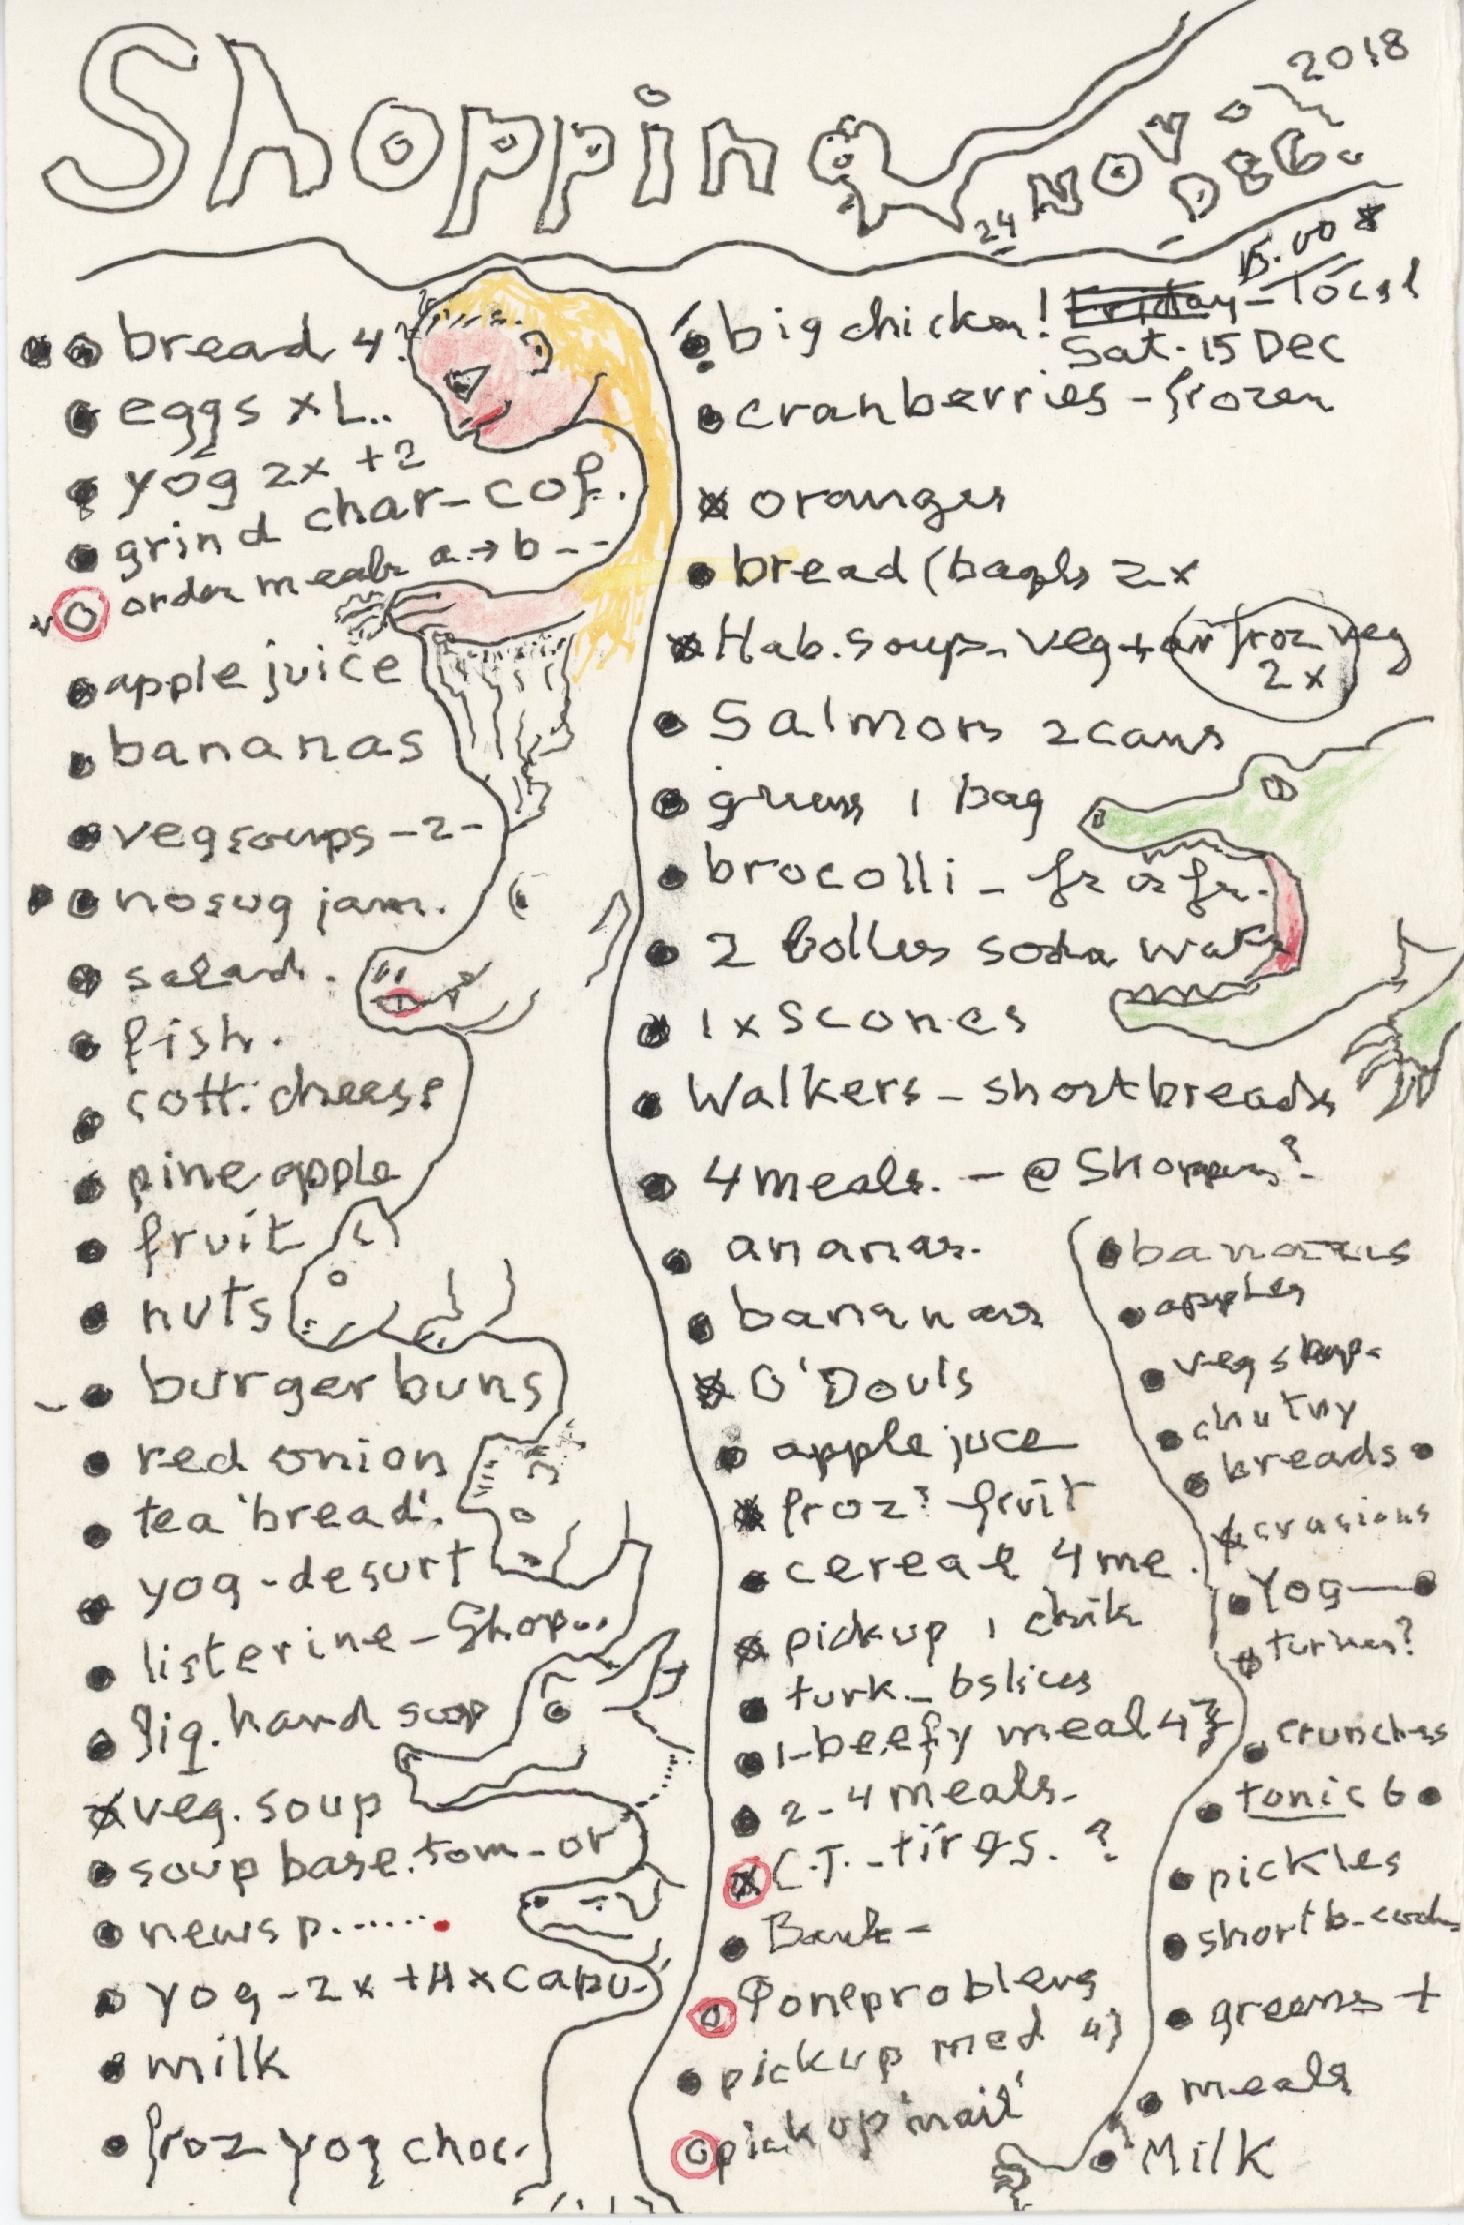 Shopping
24 NOV. to DEC. 2018
bread 4?
eggs x L..
yog 2x +2
grind char-cof.
order meals a→b--
apple juice
bananas
veg soups -2-
no sug jam.
salad.
fish.
cott. cheese
pine apple
fruit
nuts
burger buns
red onion
tea 'bread'.
yog-desurt
listerine - Shop...
liq. hand soap
veg. soup
soup base. tom - or
newsp......
yog - 2x + 4 x capu.
milk
froz yog choc.
15.00
big chicken! Friday - local
Sat. 15 Dec
cranberries - frozen
oranges
bread (bagls 2x
Hab. soup - veg + froz veg
2x
Salmon 2 cans
greens 1 bag
brocolli - fr or fr.
2 bottles soda wat
1 x scones
Walkers - shortbreads
4 meals. - @ Shoppers?
ananas.
bananas
O'Douls
apple juce
froz? fruit
cereal 4 me.
pickup 1 chik
turk. - 6 slices
1 - beefy meal 4}
2 - 4 meals.
C.T. - tires. ?
Bank -
Foneproblems
pickup med 4}
pickup 'mail'
bananas
apples
veg soup.
chutny
breads
Yog
crunches
tonic 6
pickles
greens +
meals
Milk